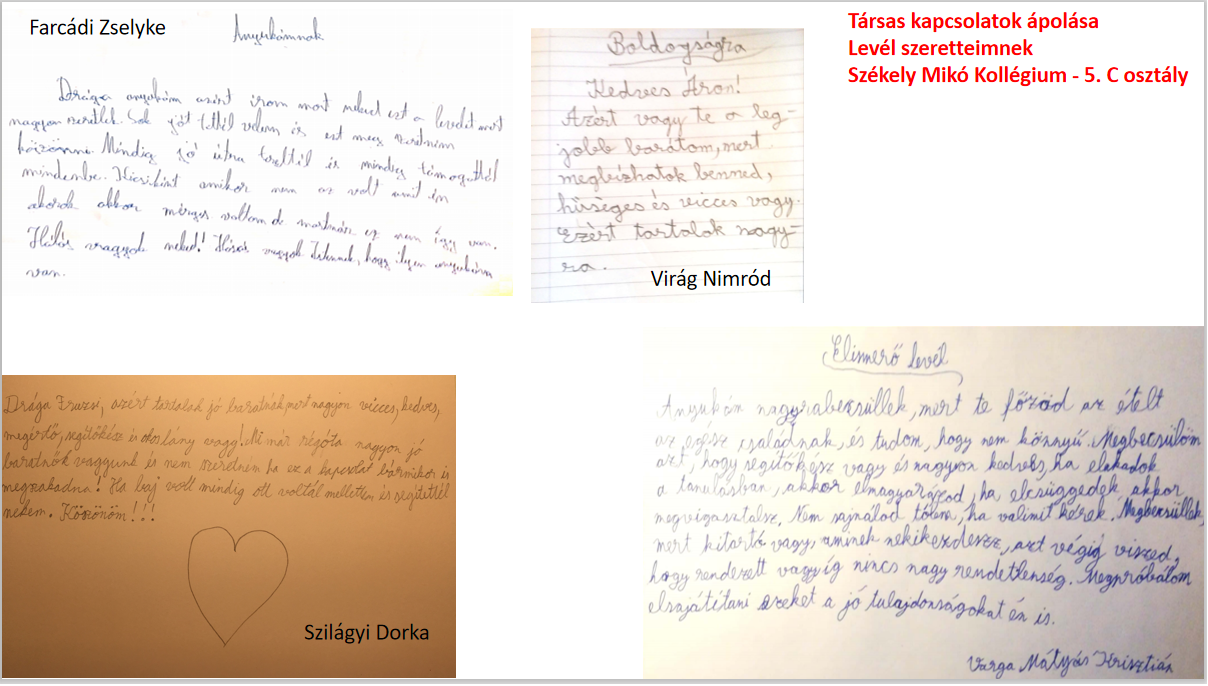 Farcádi Zselyke
Anyukámnak
Drága anyukám azért irom most neked ezt a levelet mert
nagyon szeretlek. Sok jót tettél velem és ezt meg szeretném
köszönni. Mindig jó útra tereltél és mindig támogattál
mindenbe. Kicsiként amikor nem az volt amit én
akarok akkor mérges voltam de mostmár ez nem így van.
Hálás vagyok neked! Hálás vagyok Istennek, hogy ilyen anyukám
van.
Boldogságra
Kedves Áron!
Azért vagy te a leg-
jobb barátom, mert
megbízhatok benned,
hűséges és vicces vagy.
Ezért tartalak nagy-
ra.
Virág Nimród
Társas kapcsolatok ápolása
Levél szeretteimnek
Székely Mikó Kollégium - 5. C osztály
Drága Fruzsi, azért tartalak jó baratnák, mert nagyon vicces, kedves,
megértő, segítőkész és okos lány vagy! Mi már régóta nagyon jó
baratnők vaggunk és nem szeretném ha ez a kapcsolat bármikor is
megszakadna! Ha baj volt mindig ott voltál mellettem és segítettél
nekem. Köszönöm!!!
Szilágyi Dorka
Elismerő levél
Anyukám nagyrabecsüllek, mert te főzöd az ételt
az egész családnak, és tudom, hogy nem könnyű. Megbecsülöm
azt, hogy segítőkész vagy és nagyon kedves, ha elakadok
a tanulásban, akkor elmagyarázod, ha elcsüggedek, akkor
megvigasztalsz. Nem sajnálod tőlem, ha valimit kérek. Megbecsüllek,
mert kitartó vagy, aminek nekikezdesz, azt végig viszed,
hogy rendezett vagy, így nincs nagy rendetlenség. Megpróbálom
elsajátítani ezeket a jó tulajdonságokat én is.
Varga Mátyás Krisztián